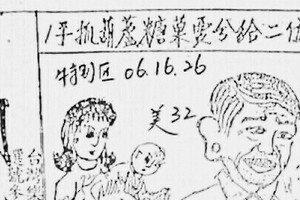 手抓葫蘆糖菓要分給二
特别区 06.16.26
美32